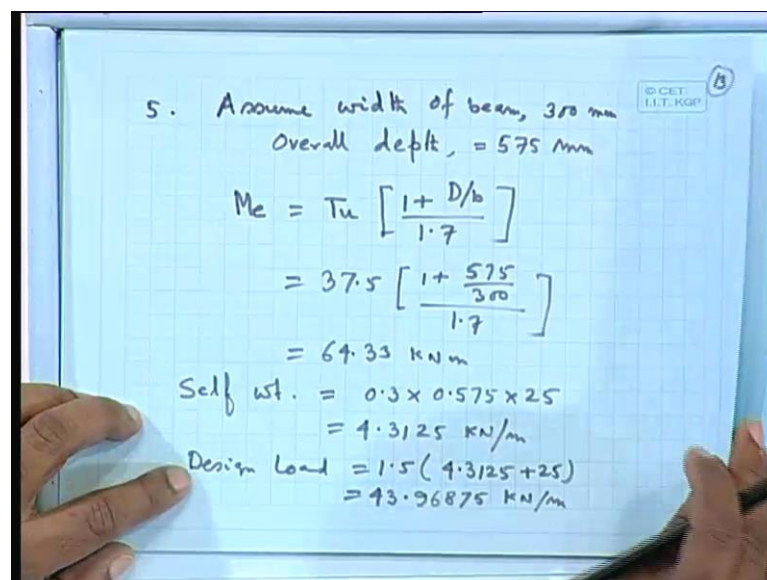 © CET
I.I.T. KGP
13
5. Assume width of beam, 300 mm
Overall depth, = 575 mm
Me = Tu [ 1 + D/b / 1.7 ]
= 37.5 [ 1 + 575/300 / 1.7 ]
= 64.33 KNm
Self wt. = 0.3 × 0.575 × 25
= 4.3125 KN/m
Design Load = 1.5 ( 4.3125 + 25 )
= 43.96875 KN/m